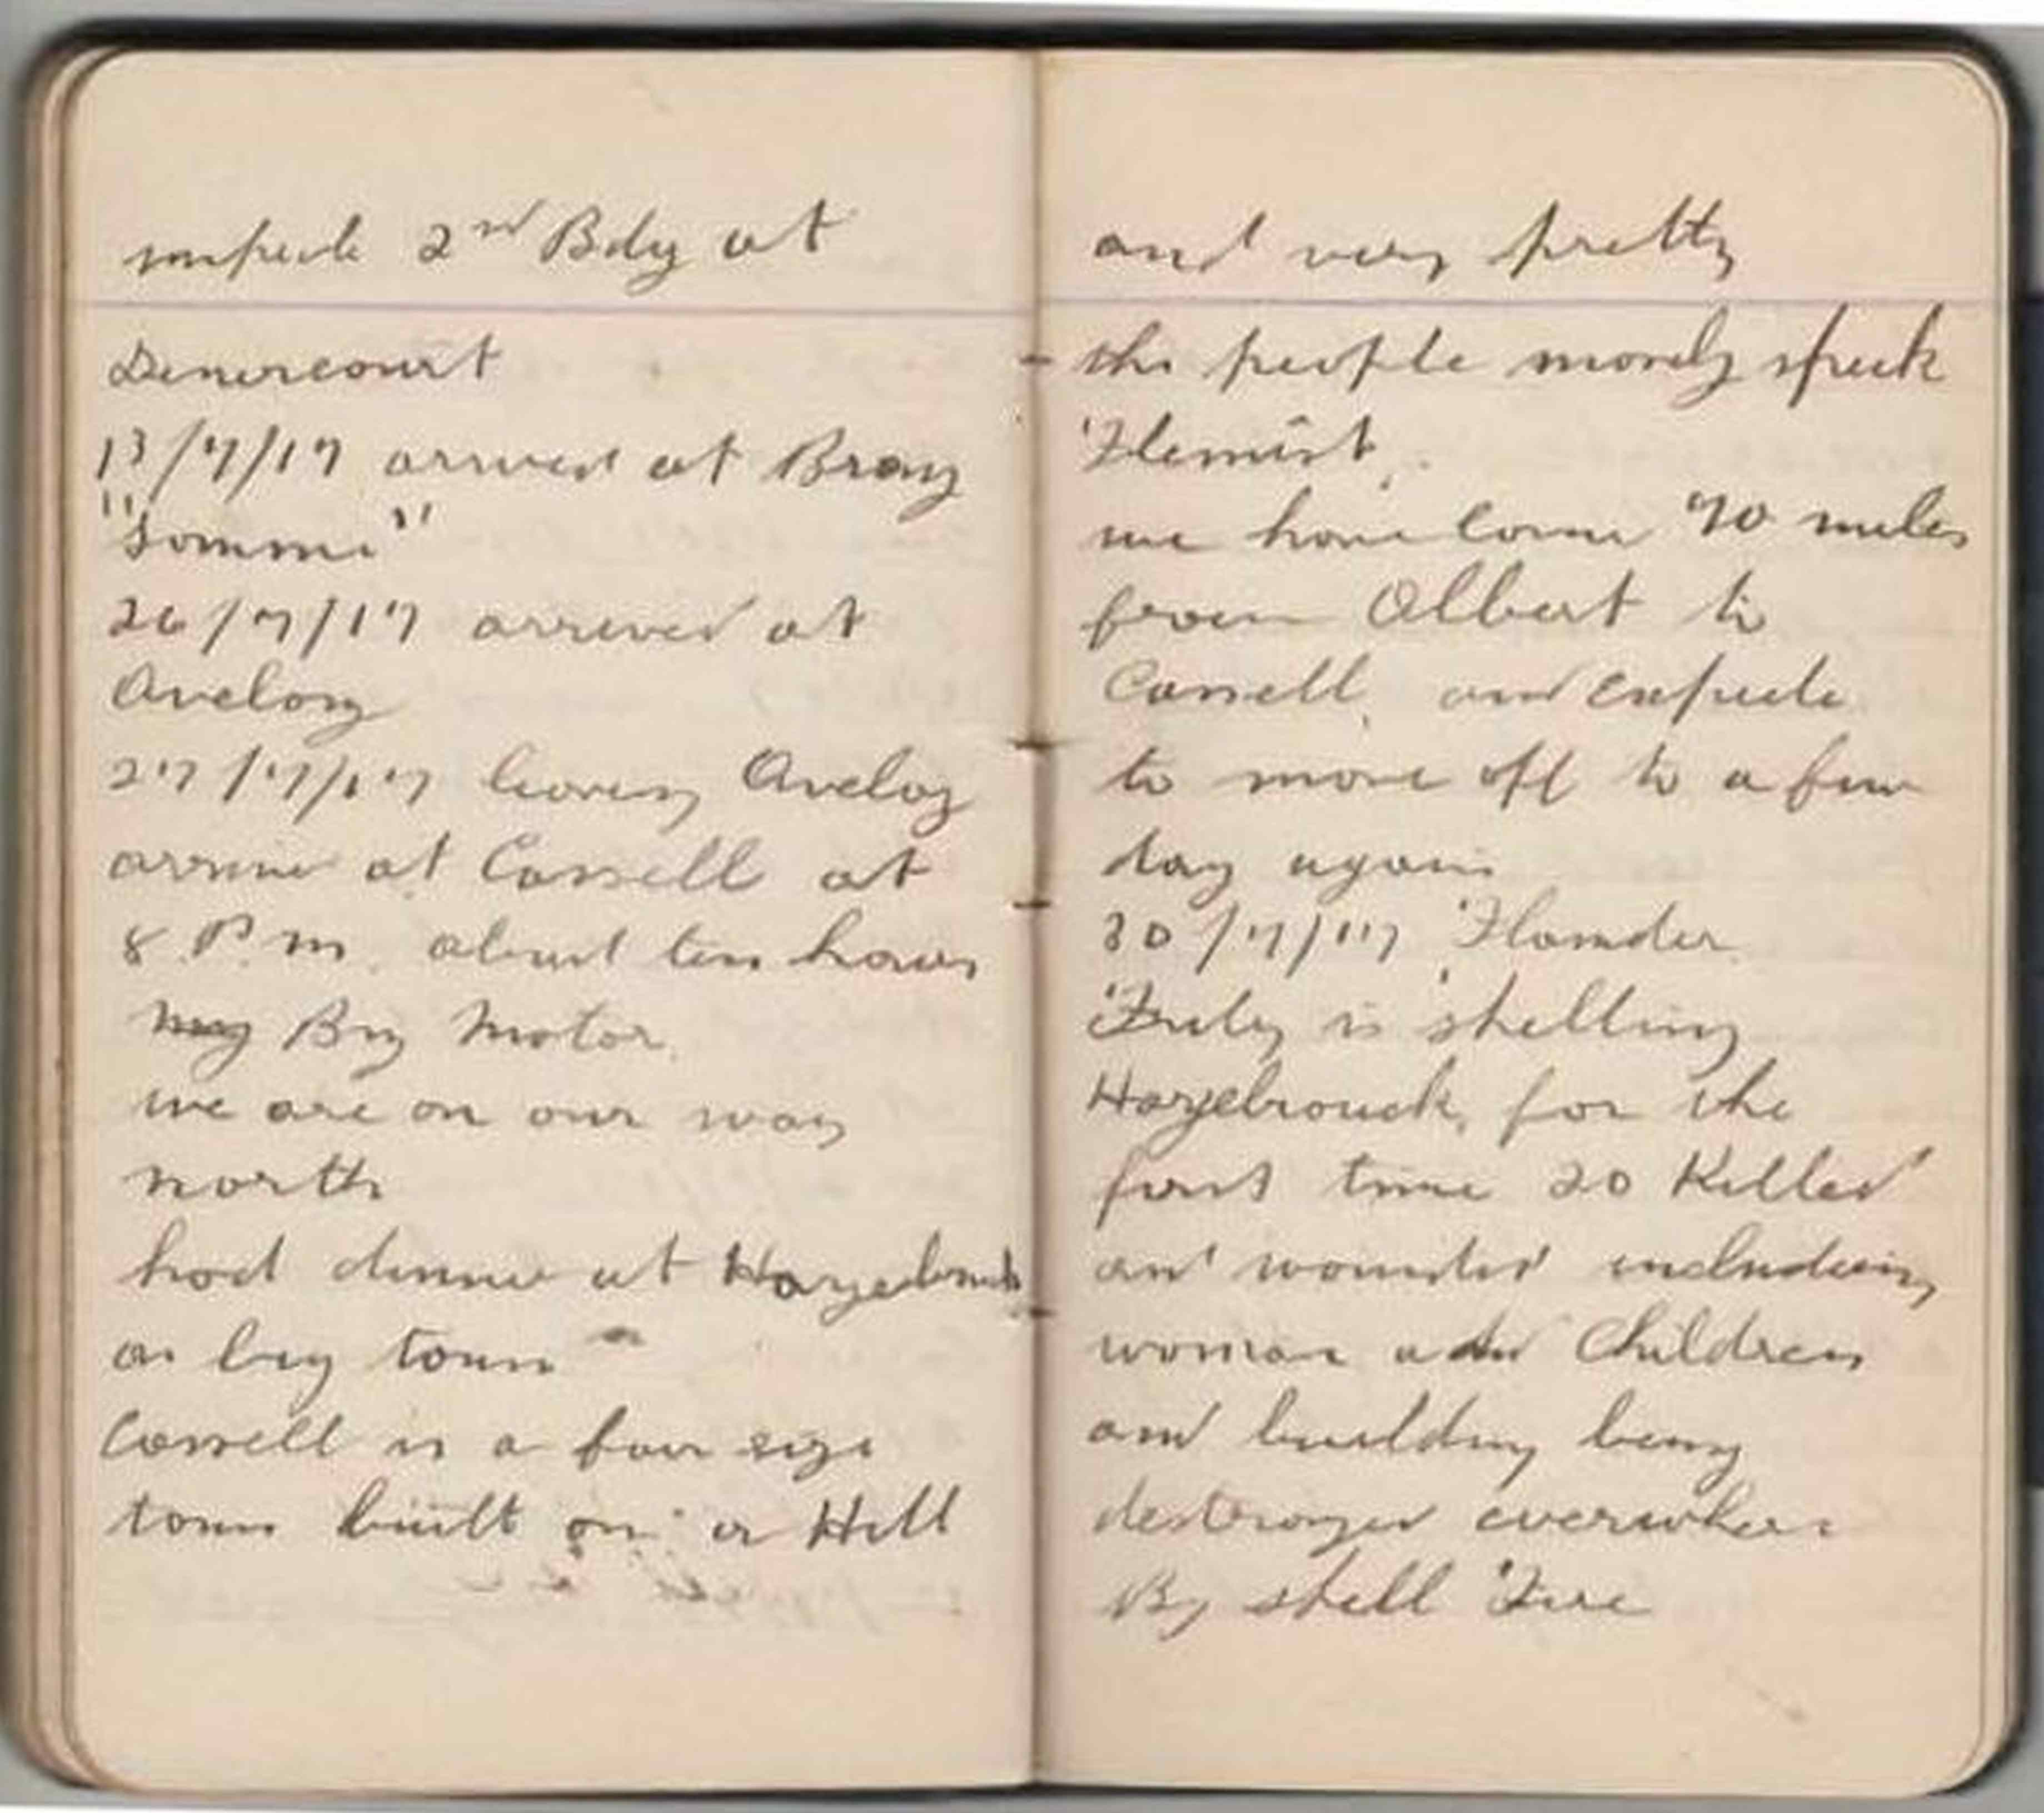 inspecte 2nd Bdy at
Denercourt
13/7/17 arrived at Bray
"Somme"
26/7/17 arrived at
Aveloy
27/7/17 leaving Aveloy
arrive at Cassell at
8 P.m. about ten hours
By Motor.
we are on our way
north
had dinner at Hazebruck
a big town
Cassell is a fair size
town built on a Hill
and very pretty
the people mosely speek
Flemist.
we have come 70 miles
from Albert to
Cassell, and expecte
to move off to a few
day again
30/7/17 Flander
Frity is shelling
Hazebrouck, for the
first time 20 Killed
and wounded including
woman and Children
and building being
destroyed everwhere
By shell Fire